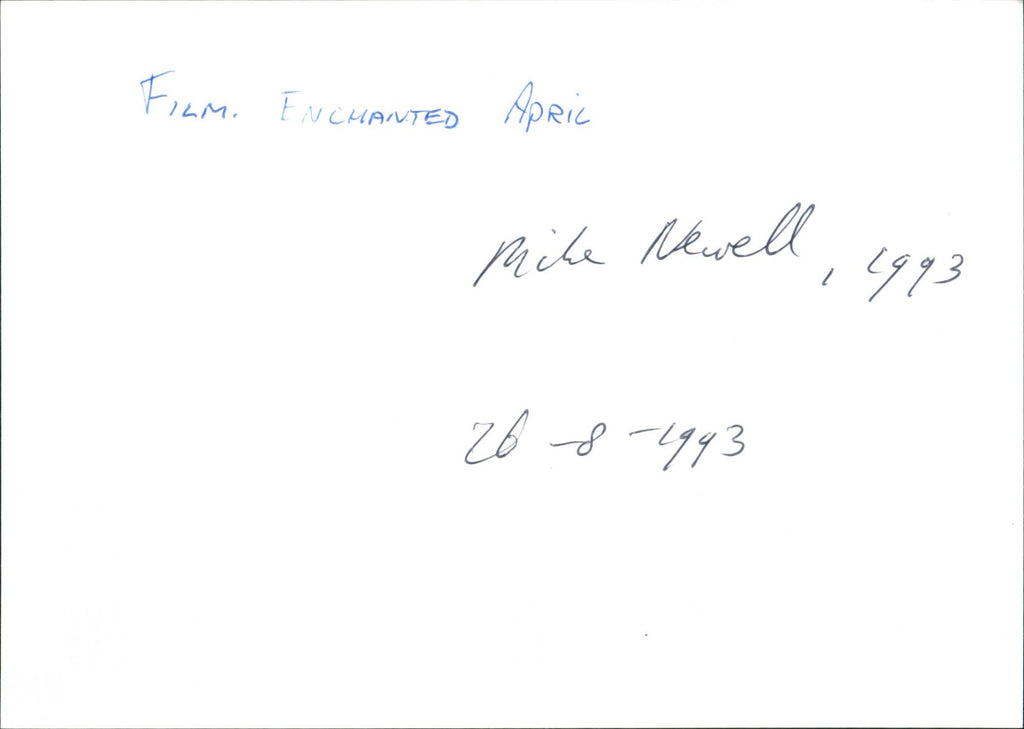 FILM. ENCHANTED APRIL
Mike Newell, 1993
26-8-1993